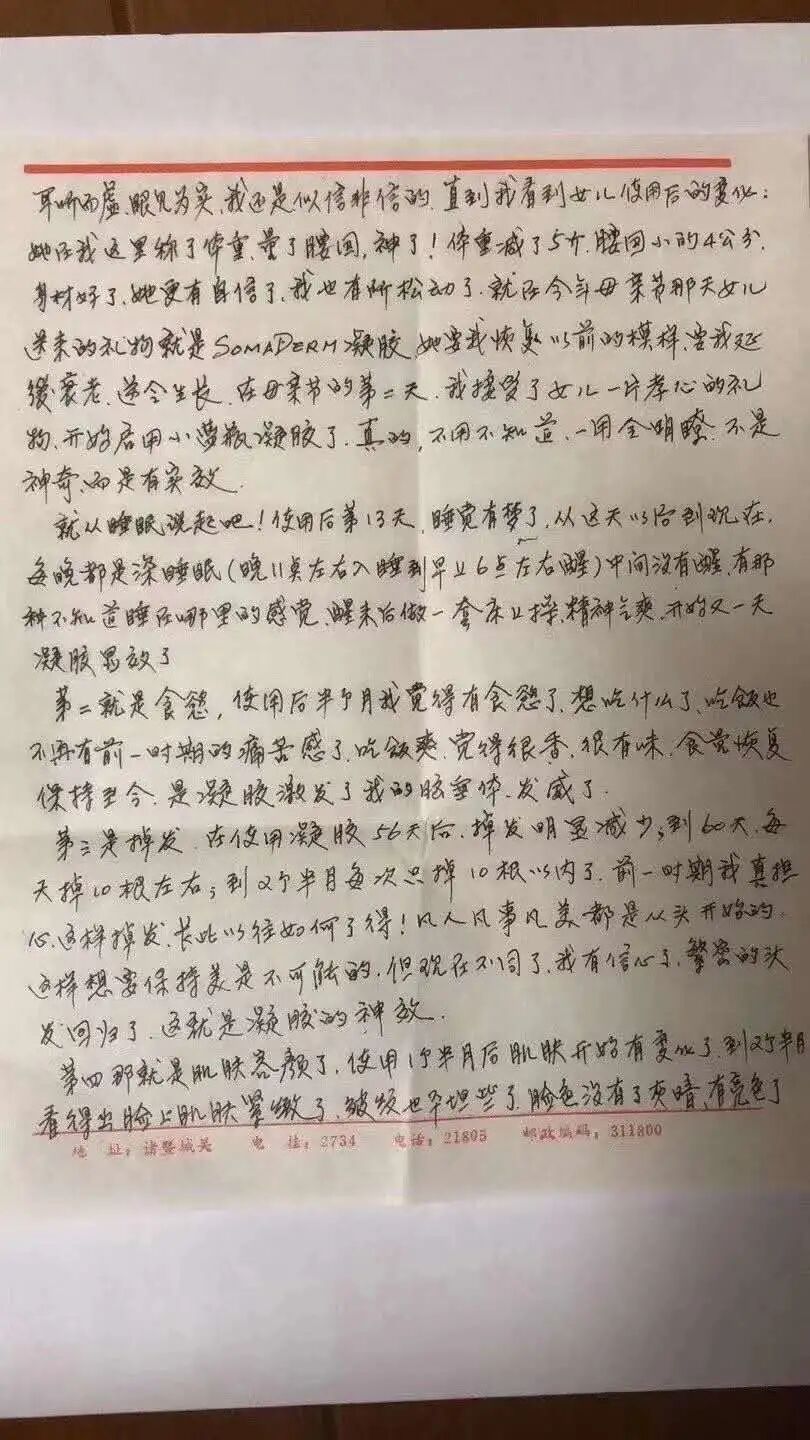 耳听而虚,眼见为实,我还是似信非信的.直到我看到女儿使用后的变化:
她在我这里称了体重,量了腰围,神了!体重减了5斤.腰围小的4公分.
身材好了,她更有自信了,我也有所松动了.就在今年母亲节那天女儿
送来的礼物就是SOMADERM凝胶 她要我恢复以前的模样,要我延
缓衰老.逆令生长.在母亲节的第二天.我接受了女儿一片孝心的礼
物,开始启用小萝瓶凝胶了.真的,不用不知道,一用全明瞭.不是
神奇,而是有实效.
就从睡眠说起吧!使用后第13天,睡觉有梦了,从这天以后到现在,
每晚都是深睡眠(晚11点左右入睡到早上6点左右醒)中间没有醒,有那
种不知道睡在哪里的感觉,醒来后做一套床上操,精神气爽,开始又一天
凝胶显效了
第二就是食慾,使用后半个月我觉得有食慾了,想吃什么了,吃饭也
不再有前一时期的痛苦感了,吃饭爽.觉得很香.很有味.食觉恢复
保持至今.是凝胶激发了我的脑垂体.发威了.
第三是掉发.在使用凝胶56天后.掉发明显减少;到60天,每
天掉10根左右;到2个半月每次只掉10根以内了.前一时期我真担
心,这样掉发,长此以往如何了得!凡人凡事凡美都是从头开始的.
这样想要保持美是不可能的,但现在不同了,我有信心了,繁密的头
发回归了.这就是凝胶的神效.
第四那就是肌肤容颜了,使用1个半月后肌肤开始有变化了.到2个半月
看得出脸上肌肤紧緻了,皱纹也平坦些了.脸色没有了灰暗,有亮色了
地 址:诸暨城关 电 挂:2734 电话:21805 邮政编码:311800